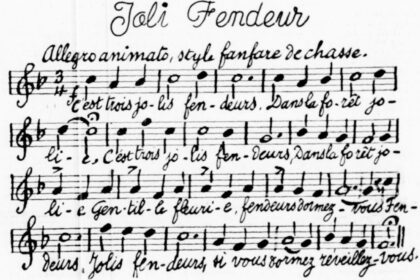 Joli Fendeur
Allegro animato, style fanfare de chasse.
3
4
f
C'est trois jo-lis fen-deurs. Dans la fo-rêt jo-
li-e, C'est trois jo-lis fen-deurs, Dans la fo-rêt jo-
li-e Gen-til-le fleuri-e, fendeurs dormez, vous Fen-
deurs, Jolis fen-deurs, si vous dormez réveillez-vous